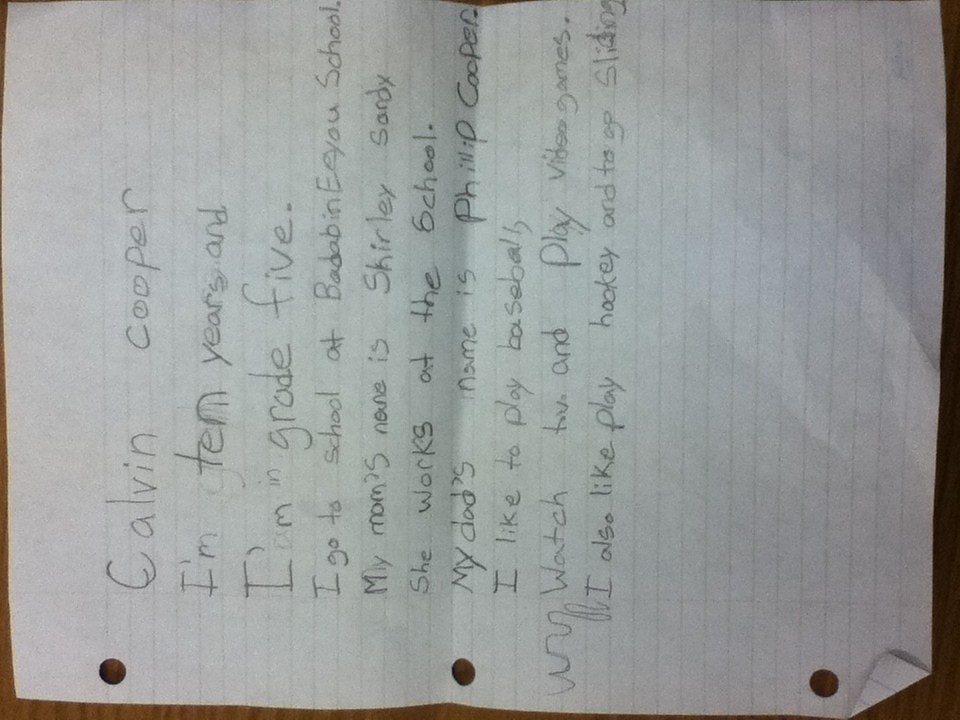 Calvin cooper
I'm ten years and
I'm in grade five.
I go to school at Badabin Eeyou School.
My mom's name is Shirley Sandy
She works at the School.
My dad's name is Phillip Cooper
I like to play baseball,
Watch t.v. and Play videogames.
I also like play hockey and to go sliding